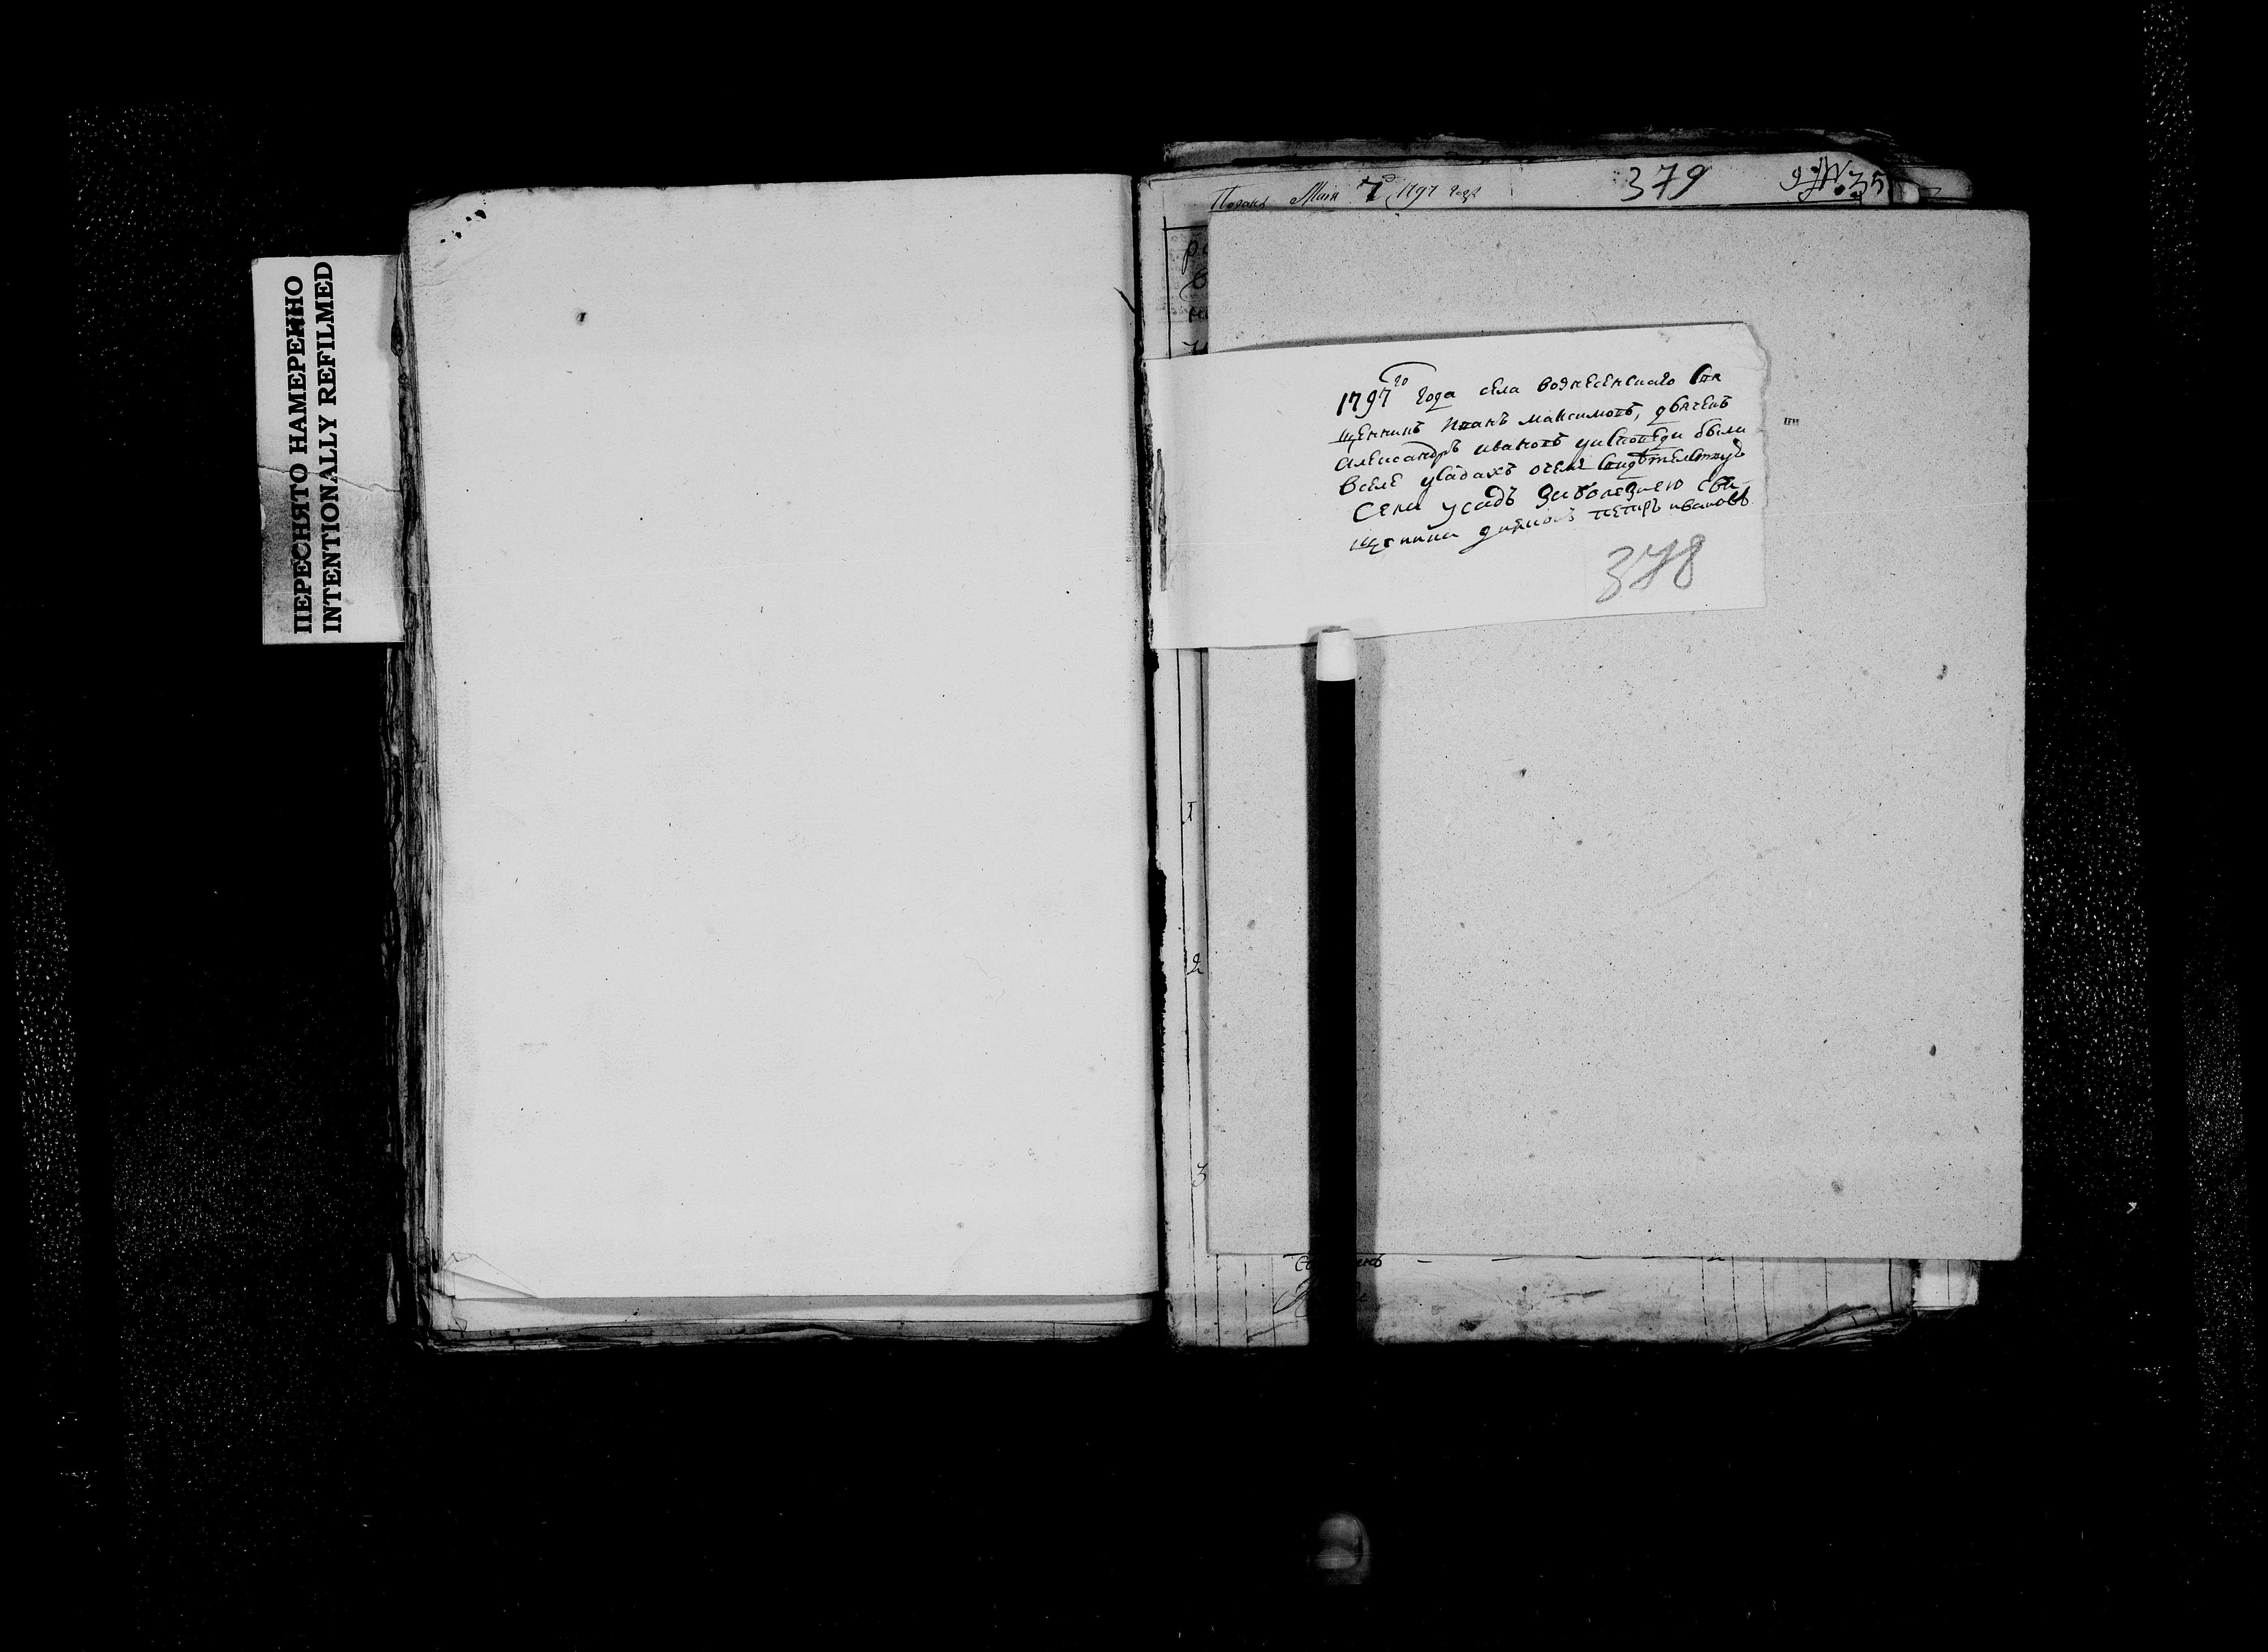 ПЕРЕСНЯТО НАМЕРЕННО
INTENTIONALLY REFILMED
Подано Маiя 7 1797 года
379
1797го года села вознесенскаго Свя
щенникъ Иванъ максимовъ, дьячекъ
александръ ивановъ уисповеди были
Вселе усадахъ очемъ свидѣтельствуетъ
Села усадъ заболезнею свя-
щенника дьячокъ петръ ивановъ
378
1
2
3